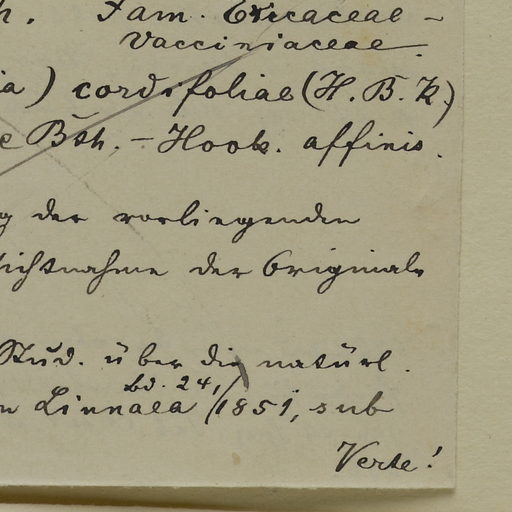 h. Fam. Ericaceae -
Vacciniaceae.
ia) cordifoliae (H. B. K.)
e Bth. - Hook. affinis.
g der vorliegenden
sichtnahme der Originale
Stud. über die natürl.
Bd. 24,
n Linnaea 1851, sub
Verte!